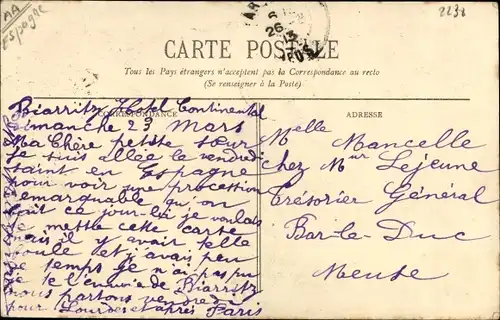 AA
Espagne
2238
CARTE POSTALE
Tous les Pays étrangers n'acceptent pas la Correspondance au recto
(Se renseigner à la Poste)
CORRESPONDANCE
Biarritz Hotel Continental
dimanche 23 Mars
Ma Chère petite sœur
je suis allée le vendredi
saint en Espagne
pour voir une procession
remarquable qu'on
fait ce jour-là je voulais
te mettre cette carte
mais il y avait telle
foule et j'avais peu
de temps je n'ai pas pu
je te l'envoie de Biarritz
nous partons vendredi
pour Lourdes et après Paris
ADRESSE
Melle Mancelle
chez Mur Lejeune
Trésorier Général
Bar-le-Duc
Meuse